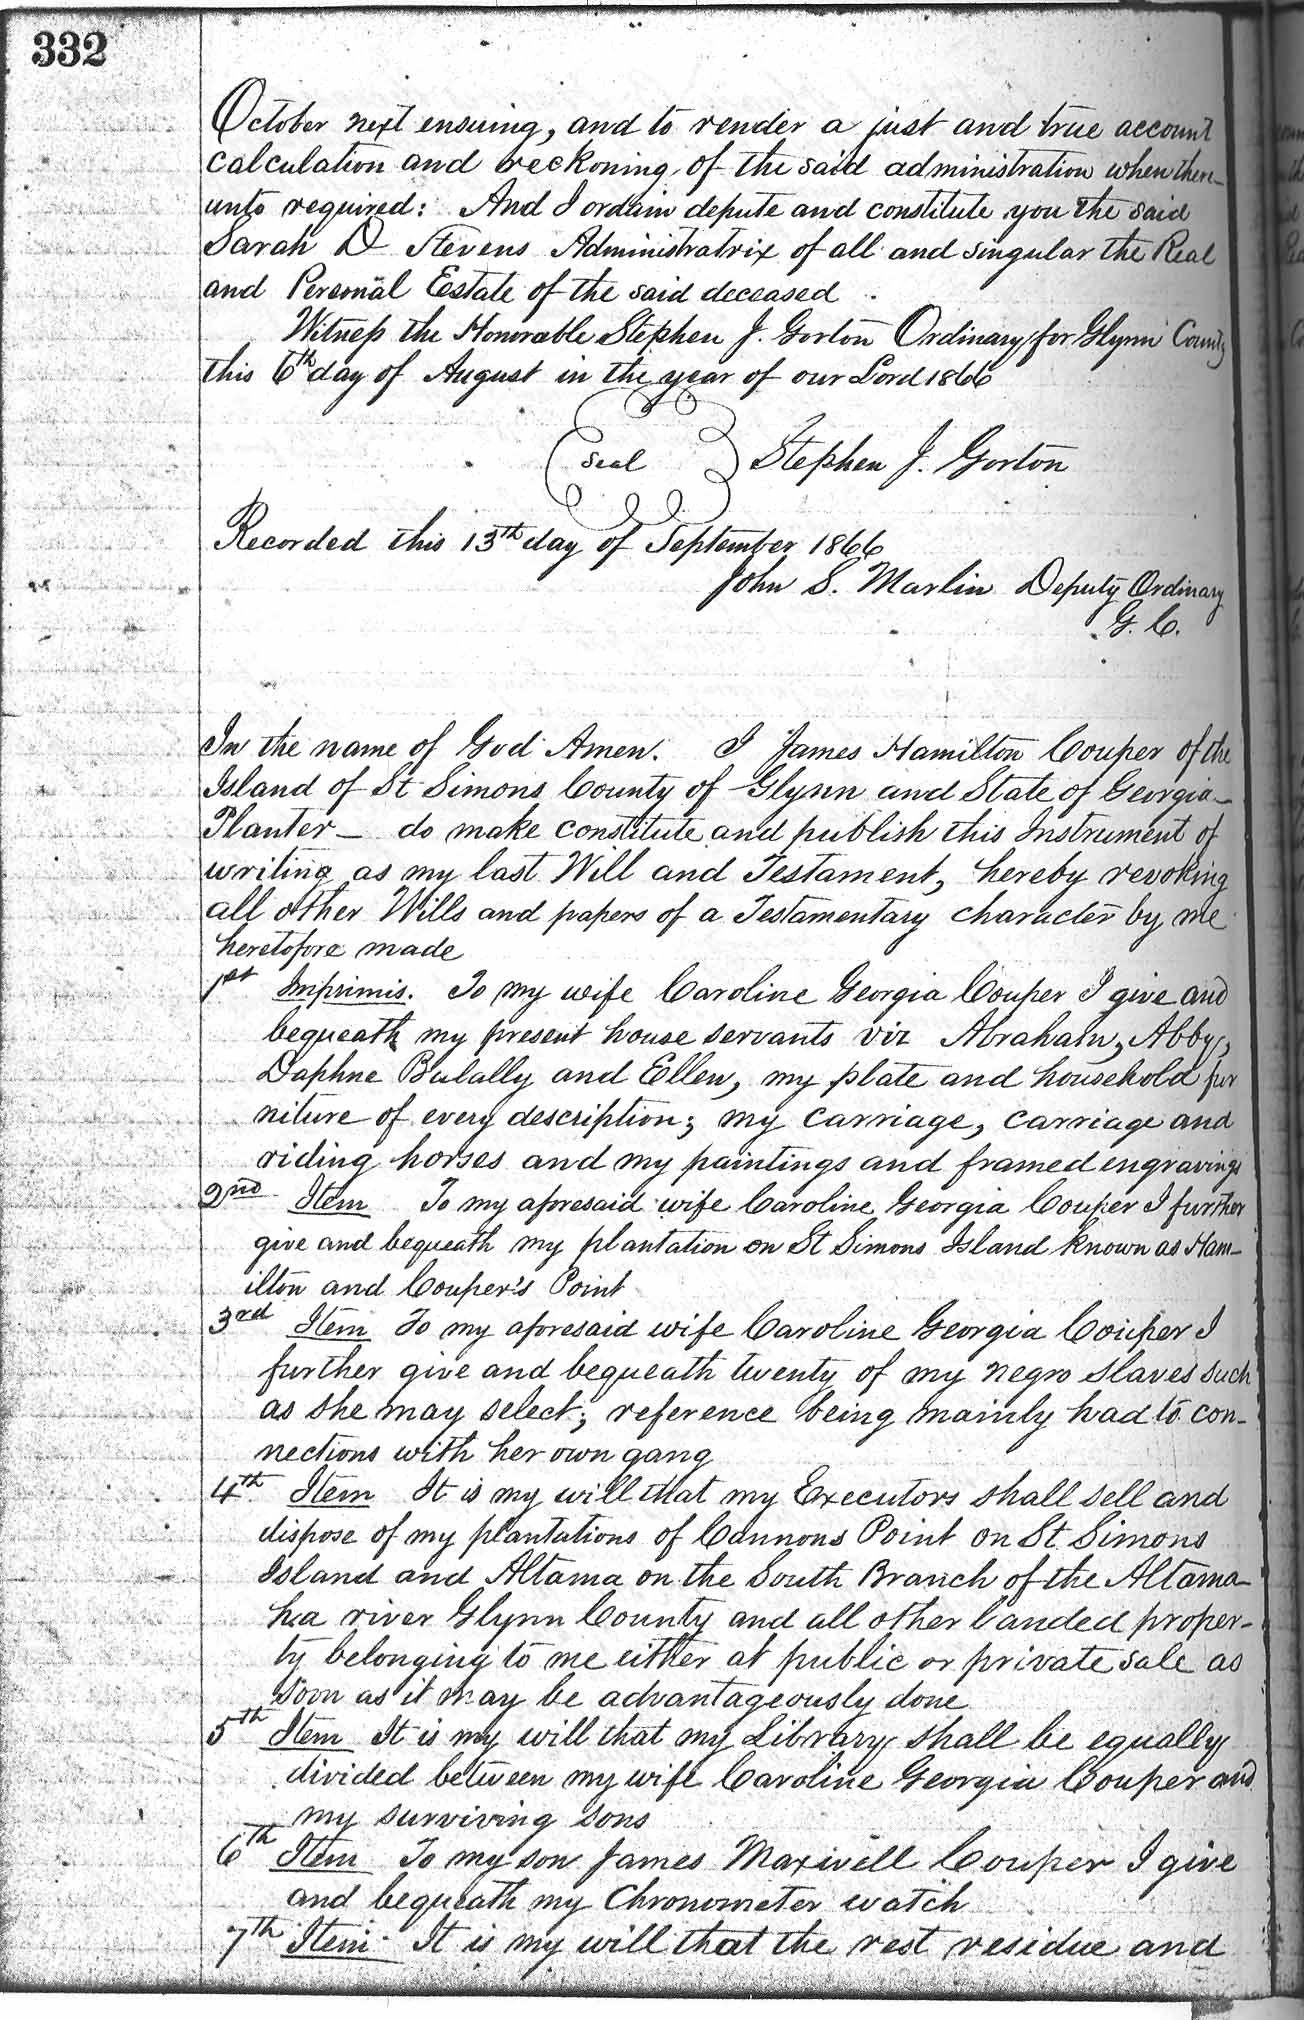 332
October next ensuing, and to render a just and true account
calculation and reckoning of the said administration when there-
unto required: And I ordain depute and constitute you the said
Sarah D Stevens Administratrix of all and singular the Real
and Personal Estate of the said deceased.
Witness the Honorable Stephen J. Gorton Ordinary for Glynn County
this 6th day of August in the year of our Lord 1866
Seal Stephen J. Gorton
Recorded this 13th day of September 1866
John S. Marlin Deputy Ordinary
G. C.
In the name of God Amen. I James Hamilton Couper of the
Island of St Simons County of Glynn and State of Georgia
Planter - do make constitute and publish this Instrument of
writing as my last Will and Testament, hereby revoking
all other Wills and papers of a Testamentary character by me
heretofore made
1st Imprimis. To my wife Caroline Georgia Couper I give and
bequeath my present house servants viz Abraham, Abby,
Daphne Bulally and Ellen, my plate and household fur
niture of every description; my carriage, carriage and
riding horses and my paintings and framed engravings
2nd Item To my aforesaid wife Caroline Georgia Couper I further
give and bequeath my plantation on St Simons Island known as Ham-
ilton and Couper's Point
3rd Item To my aforesaid wife Caroline Georgia Couper I
further give and bequeath twenty of my negro slaves such
as she may select; reference being mainly had to con-
nections with her own gang
4th Item It is my will that my Executors shall sell and
dispose of my plantations of Cannons Point on St. Simons
Island and Altama on the South Branch of the Altama-
ha river Glynn County and all other landed proper-
ty belonging to me either at public or private sale as
soon as it may be advantageously done
5th Item It is my will that my Library shall be equally
divided between my wife Caroline Georgia Couper and
my surviving sons
6th Item To my son James Maxwell Couper I give
and bequeath my Chronometer watch
7th Item It is my will that the rest residue and